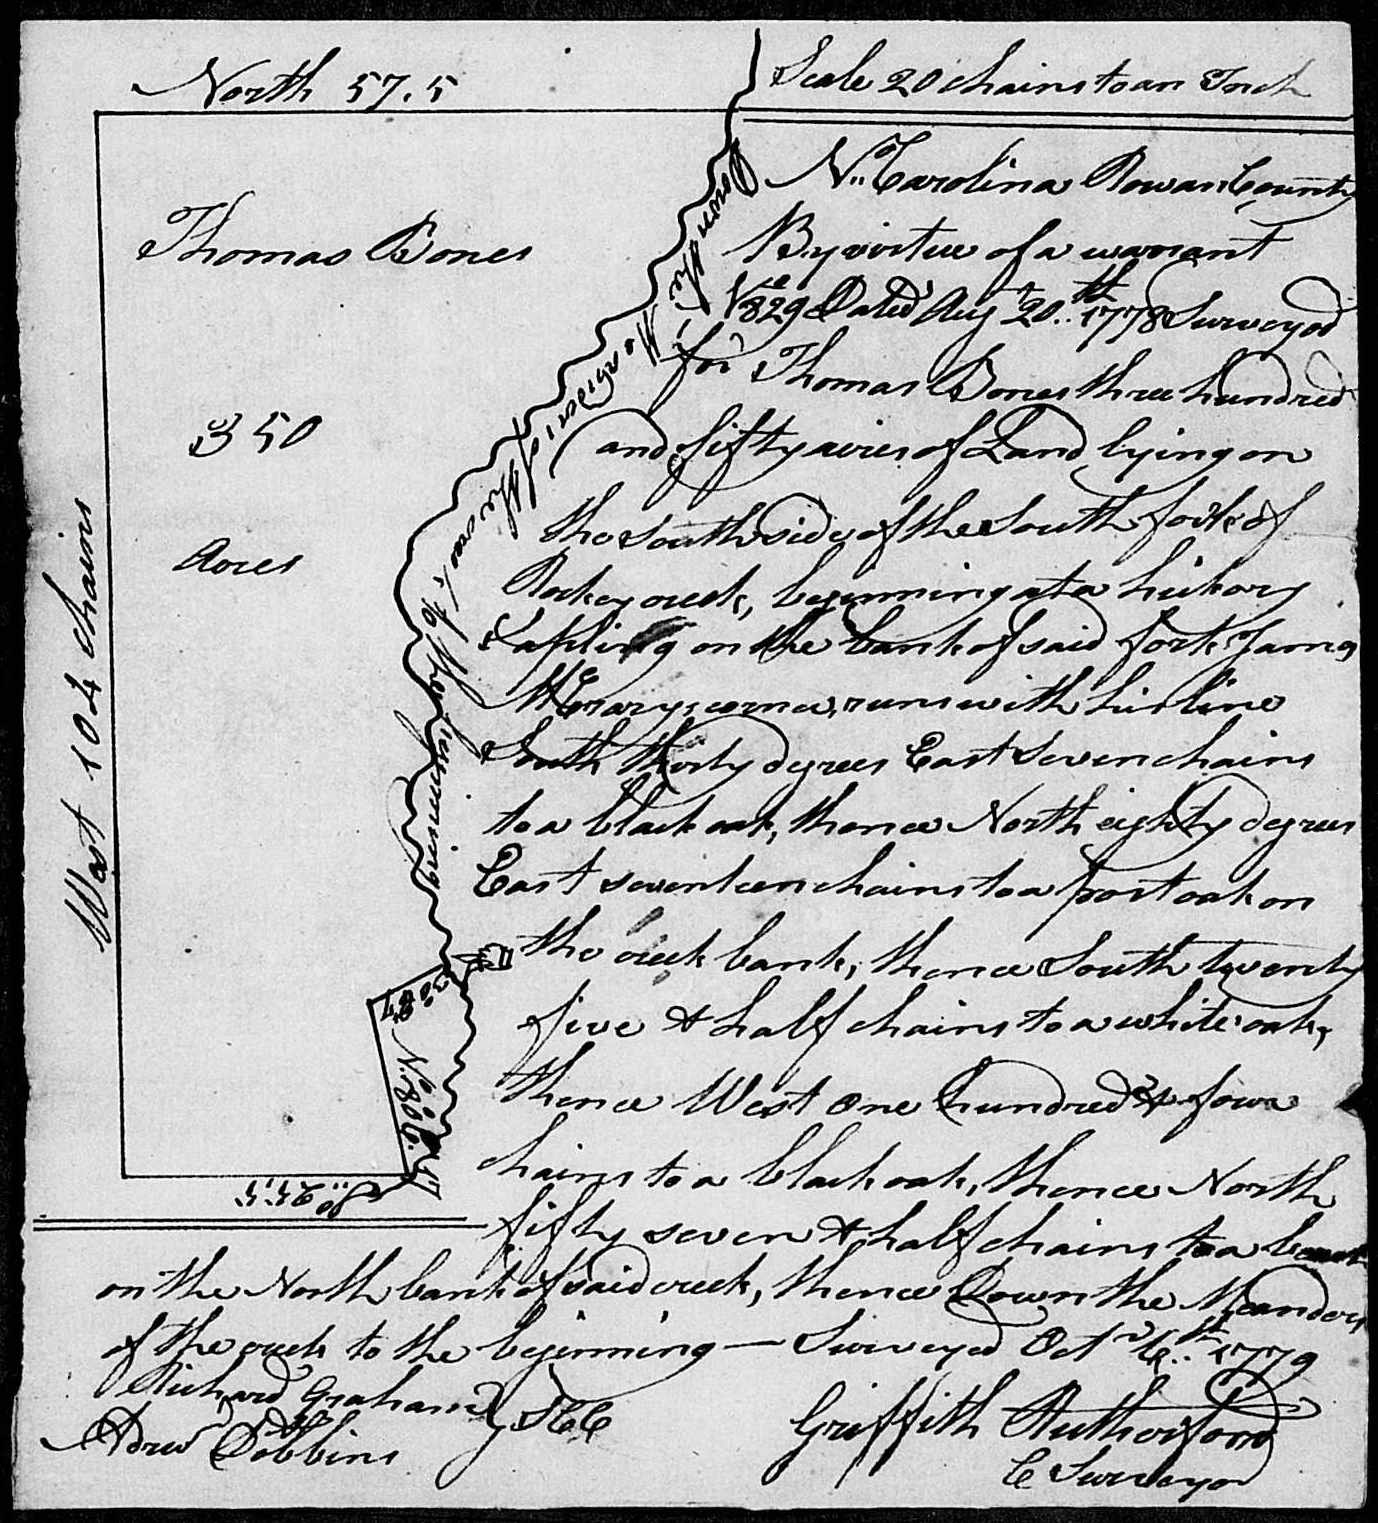 North 57.5
Scale 20 chains to an Inch
Thomas Bones
350
Acres
West 104 chains
Down the Meanders of the creek to the beginning
N. 80 E.
So. 25.5
N.. Carolina Rowan County
By virtue of a warrant
No 829 Dated Augt 20..th 1778 Surveyed
for Thomas Bones three hundred
and fifty acres of Land lying on
the south side of the South fork of
Rockey creek, beginning at a hickory
Sapling on the bank of said fork James
McCrarys corner, runs with his line
South thirty degrees East seven chains
to a black oak, thence North eighty degrees
East seventeen chains to a post oak on
the creek bank, thence South twenty
five & half chains to a white oak,
thence West one hundred & four
chains to a black oak, thence North
fifty seven & half chains to a
on the North bank of said creek, thence Down the Meanders
of the creek to the beginning — Surveyed Octr 6..th 1779
Richard Graham
Andrw Dobbins
} SCC
Griffith Rutherford
C Surveyor